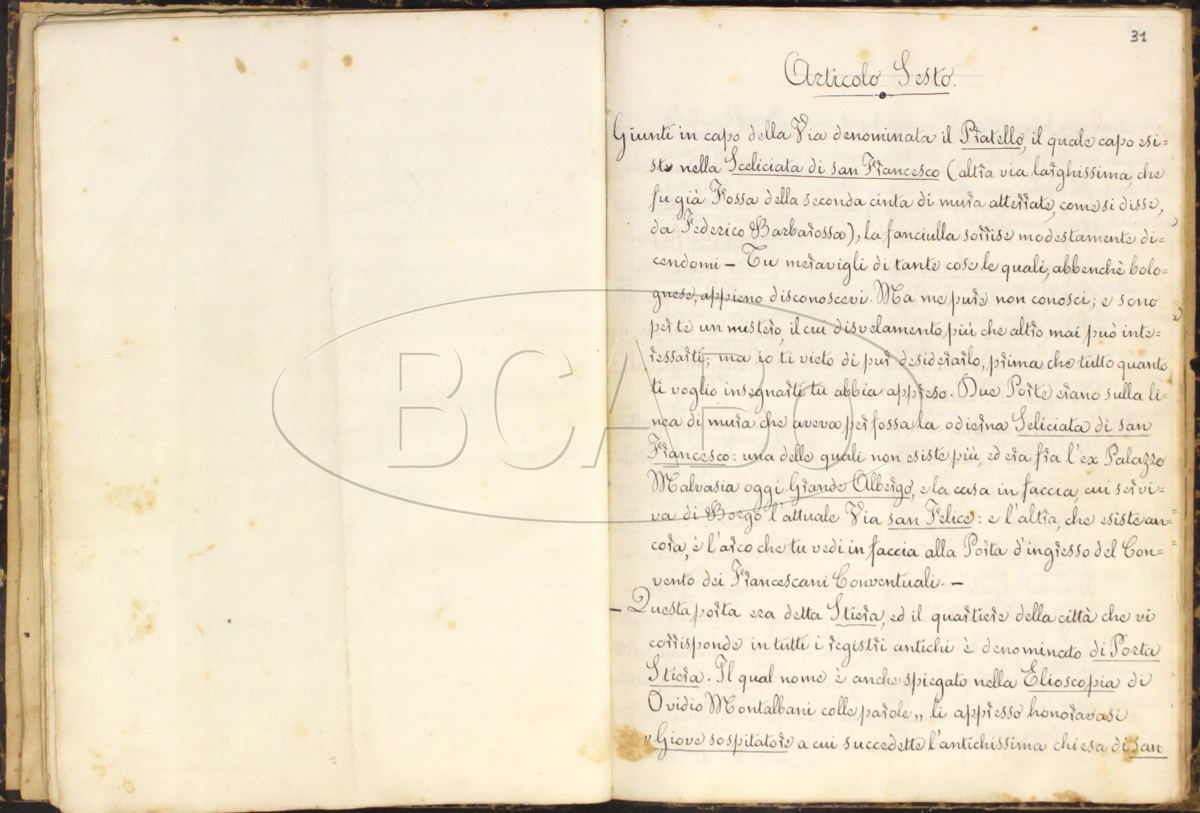 31
Articolo Sesto.
Giunti in capo della Via denominata il Pratello, il quale capo esi=
ste nella Sceliciata di san Francesco (altra via larghissima, che
fu già Fossa della seconda cinta di mura atterrate, come si disse,
da Federico Barbarossa), la fanciulla sorrise modestamente di=
cendomi — Tu meravigli di tante cose le quali, abbenchè bolo=
gnese, appieno disconoscevi. Ma me pure non conosci; e sono
per te un mistero, il cui disvelamento più che altro mai può inte=
ressarti; ma io ti vieto di pur desiderarlo, prima che tutto quanto
ti voglio insegnarti tu abbia appreso. Due Porte erano sulla li=
nea di mura che aveva per fossa la odierna Seliciata di san
Francesco: una delle quali non esiste più, ed era fra l'ex Palazzo
Malvasia oggi Grande Albergo, e la casa in faccia, cui servi=
va di Borgo l'attuale Via san Felice: e l'altra, che esiste an=
cora, è l'arco che tu vedi in faccia alla Porta d'ingresso del Con=
vento dei Francescani Conventuali. —
— Questa porta era detta Stiera, ed il quartiere della città che vi
corrisponde in tutti i registri antichi è denominato di Porta
Stiera. Il qual nome è anche spiegato nella Elioscopia di
Ovidio Montalbani colle parole „ li appresso honoravasi
„ Giove sospitatore a cui succedette l'antichissima chiesa di san
BCABO